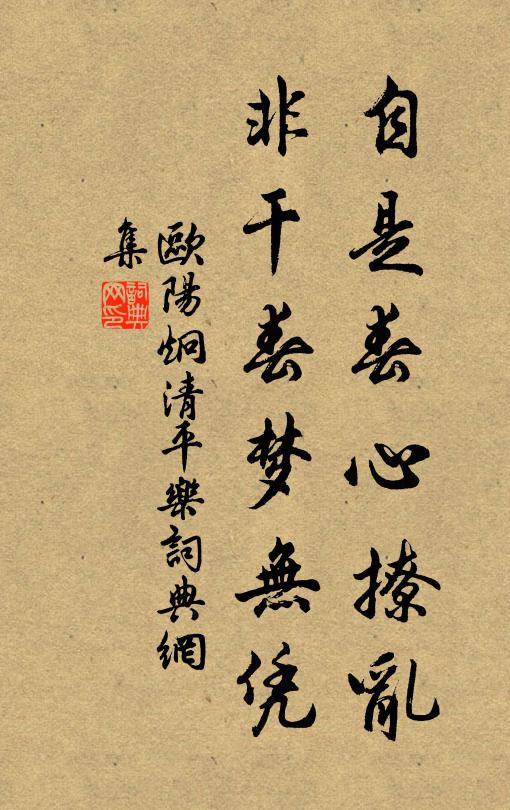 自是春心撩亂
非干春梦無凭
歐陽炯清平樂詞典網
集
詞典
网印